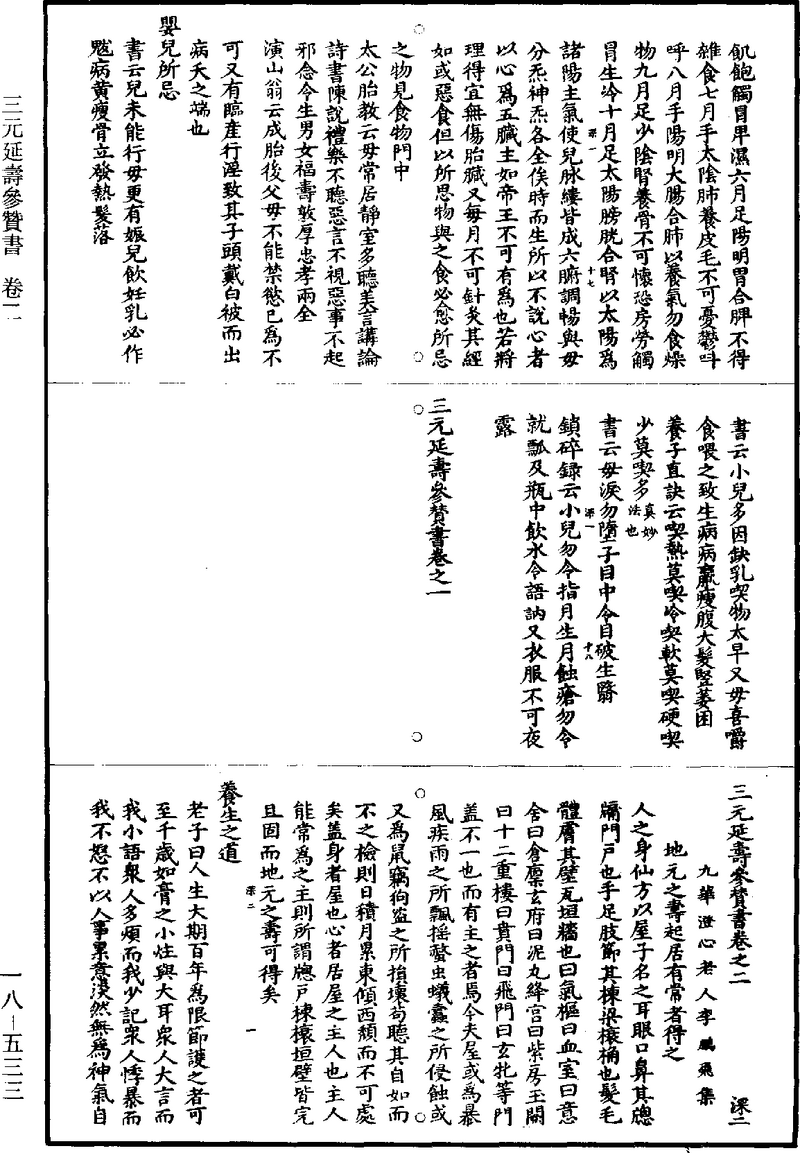 飢飽觸冒卑濕六月足陽明胃合脾不得
雜食七月手太陰肺養皮毛不可憂鬱叫
呼八月手陽明大腸合肺以養氣勿食燥
物九月足少陰腎養骨不可懷恐房勞觸
冒生冷十月足太陽膀胱合腎以太陽爲
深一
十七
諸陽主氣使兒脉縷皆成六腑調暢與母
分炁神炁各全俟時而生所以不說心者
以心爲五臟主如帝王不可有爲也若將
理得宜無傷胎臟又每月不可針灸其經
如或惡食但以所思物與之食必愈所忌
之物見食物門中
太公胎教云母常居静室多聽美言講論
詩書陳說禮樂不聽惡言不視惡事不起
邪念令生男女福壽敦厚忠孝兩全
演山翁云成胎後父母不能禁慾已爲不
可又有臨産行淫致其子頭戴白被而出
病夭之端也
嬰兒所忌
書云兒未能行母更有娠兒飲妊乳必作
魃病黄瘦骨立發熱髮落
書云小兒多因缺乳喫物太早又母喜嚼
食喂之致生病病羸瘦腹大髮竪萎困
養子直訣云喫熱莫喫冷喫軟莫喫硬喫
少莫喫多真妙法也
書云母淚勿墮子目中令目破生翳
深一
十八
鎖碎録云小兒勿令指月生月蝕瘡勿令
就瓢及瓶中飲水令語訥又衣服不可夜
露
三元延壽參贊書卷之一
三元延壽參贊書卷之二
深二
九華澄心老人李鵬飛集
地元之壽起居有常者得之
人之身仙方以屋子名之耳眼口鼻其牕
牖門户也手足肢節其棟梁榱桷也髮毛
體膚其壁瓦垣墻也曰氣樞曰血室曰意
舍曰倉廩玄府曰泥丸絳宫曰紫房玉闕
曰十二重樓曰賁門曰飛門曰玄牝等門
蓋不一也而有主之者焉今夫屋或爲暴
風疾雨之所飄摇螫虫蟻蠹之所侵蝕或
又爲鼠竊狗盗之所損壞苟聽其自如而
不之檢則日積月累東傾西頹而不可處
矣蓋身者屋也心者居屋之主人也主人
能常爲之主則所謂牕户棟榱垣壁皆完
且固而地元之壽可得矣
深二
一
養生之道
老子曰人生大期百年爲限節護之者可
至千歲如膏之小炷與大耳衆人大言而
我小語衆人多煩而我少記衆人悸暴而
我不怒不以人事累意淡然無爲神氣自
三元延壽參贊書　卷二
一八—五三三